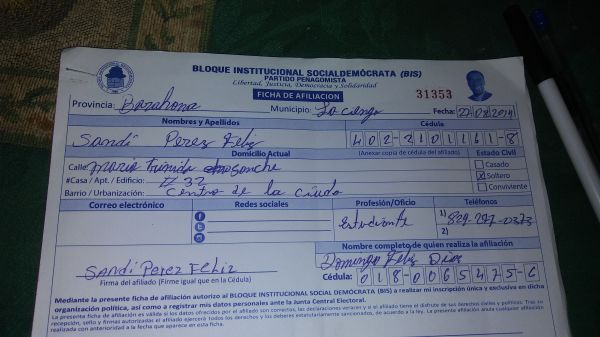 BLOQUE INSTITUCIONAL SOCIALDEMÓCRATA (BIS)
PARTIDO PEÑAGOMISTA
Libertad, Justicia, Democracia y Solidaridad
FICHA DE AFILIACION
31353
Provincia: Barahona Municipio: La cienga Fecha:
Nombres y Apellidos Cédula
Sandi Perez Feliz 402-2101161-8
Domicilio Actual (Anexar copia de cédula del afiliado) Estado Civil
Calle: Maria Trinida Sanche Casado
#Casa / Apt. / Edificio: # 32 X Soltero
Barrio / Urbanización: Centro de la ciudo Conviviente
Correo electrónico Redes sociales Profesión/Oficio Teléfonos
Estudiante 1) 829-277-0373
2)
Nombre completo de quien realiza la afiliación
Domingo Feliz Dias
SANDI PEREZ FELIZ
Firma del afiliado (Firme igual que en la Cédula) Cédula: 018-0065475-6
Mediante la presente ficha de afiliación autorizo al BLOQUE INSTITUCIONAL SOCIAL DEMÓCRATA (BIS) a realizar mi inscripción única y exclusiva en dicha
organización política, así como a registrar mis datos personales ante la Junta Central Electoral.
La presente ficha de afiliación es válida si los datos ofrecidos por el afiliado son correctos, las declaraciones veraces y si el afiliado tiene el disfrute de sus derechos civiles y políticos. Tras su
recepción, sello y firmas autorizadas el afiliado ejercerá todos los derechos y los deberes estatutariamente sancionados, de acuerdo a la ley. La presente afiliación anula cualquier afiliación
realizada con anterioridad a la fecha que aparece en esta ficha.